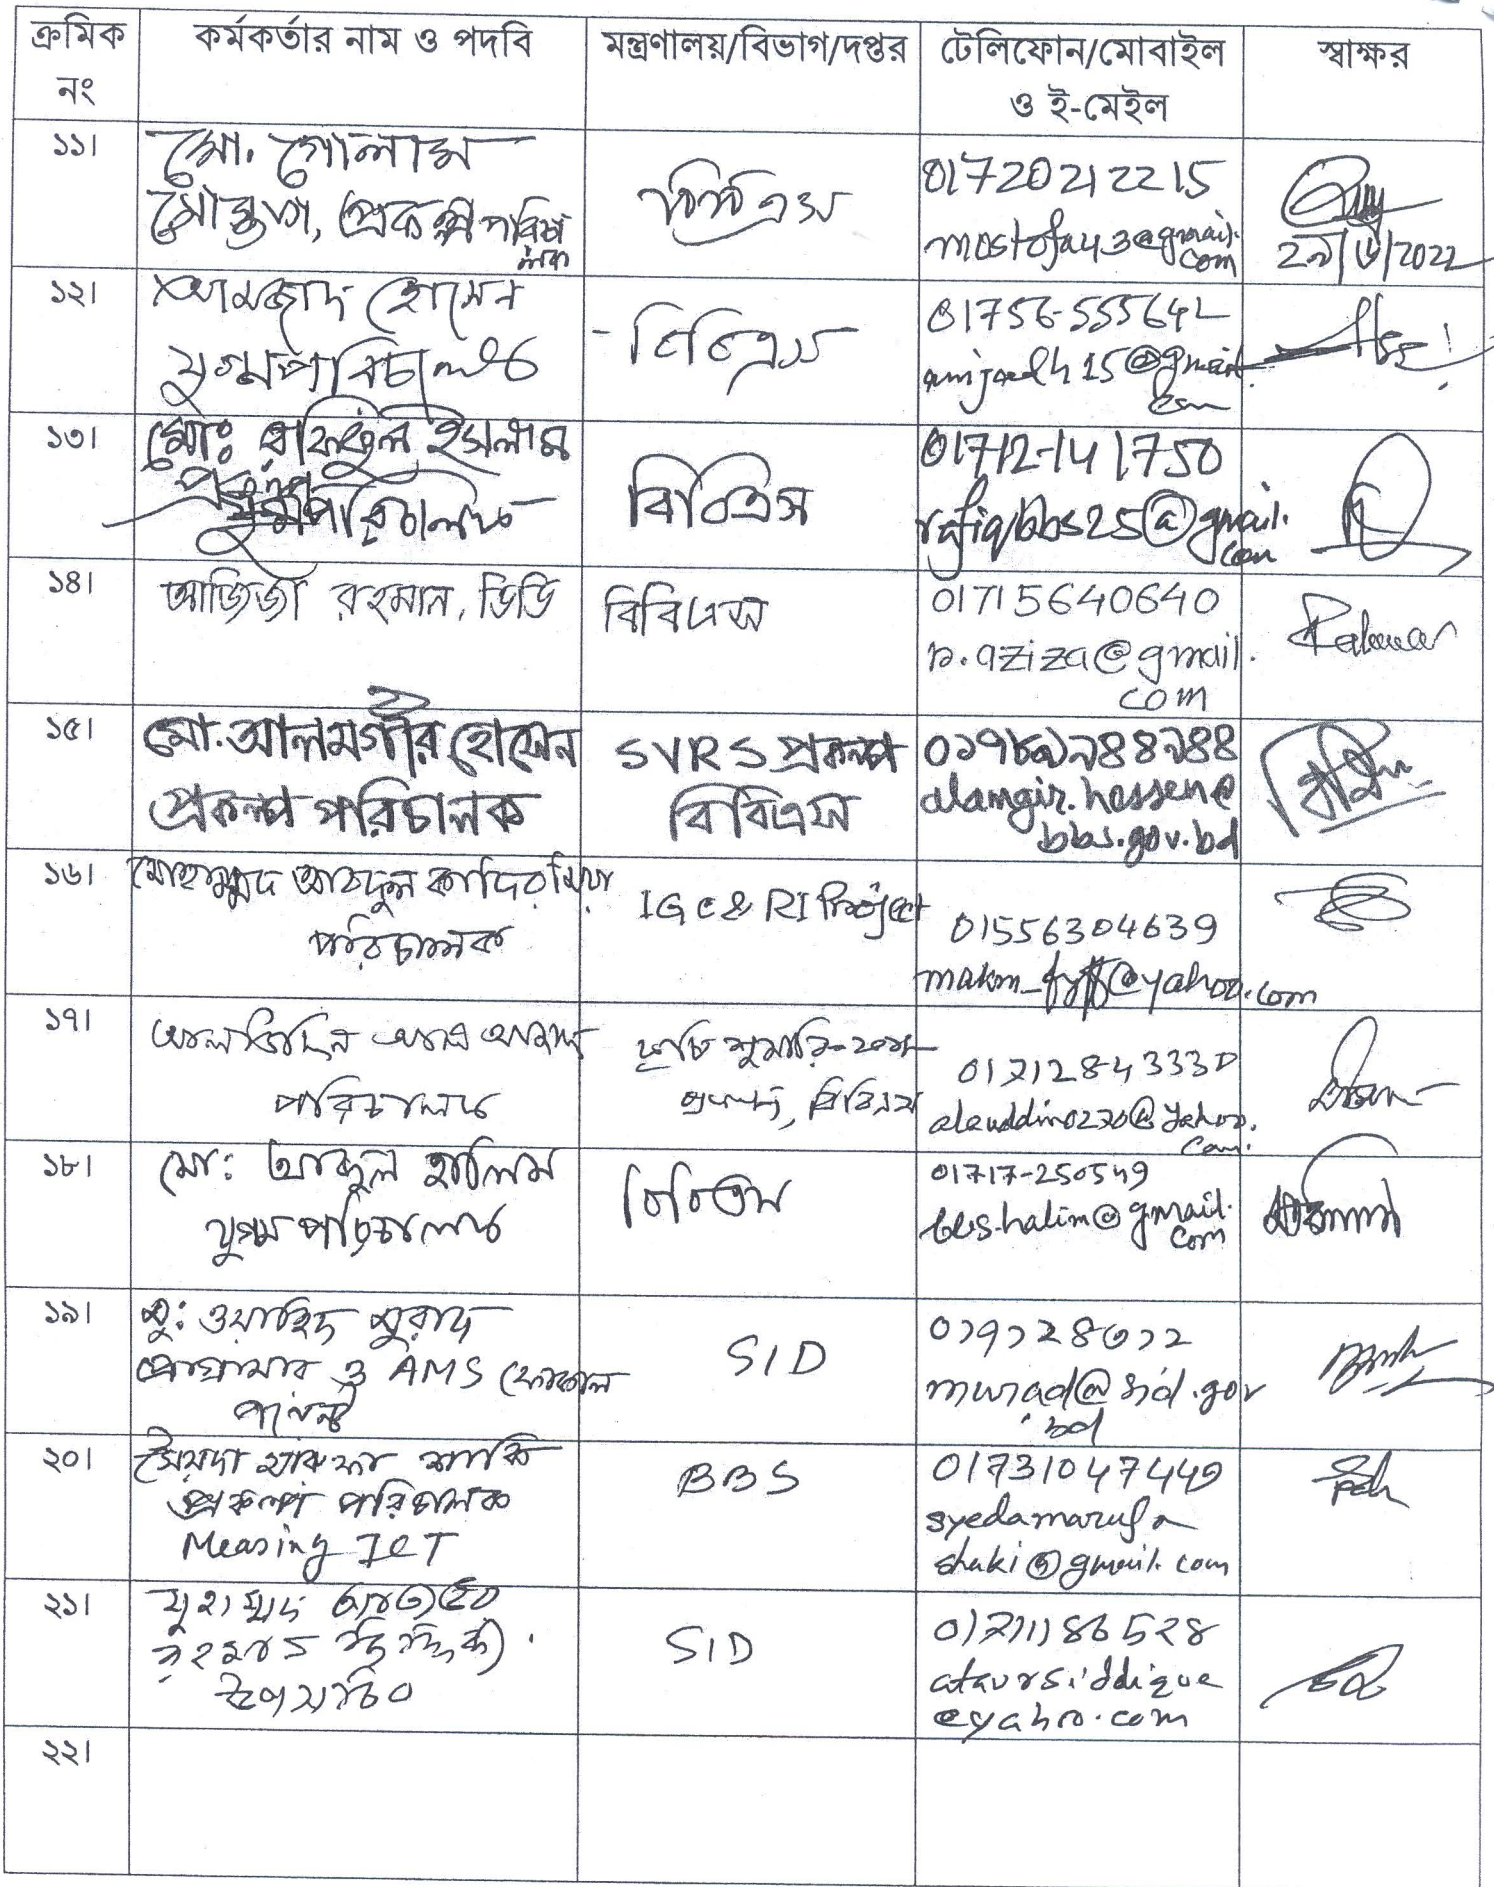 ক্রমিক নং কর্মকর্তার নাম ও পদবি মন্ত্রণালয়/বিভাগ/দপ্তর টেলিফোন/মোবাইল ও ই-মেইল স্বাক্ষর
১১।
মো. গোলাম
মোস্তফা, প্রকল্প পরিচালক
বিবিএস
01720212215
mostofa43@gmail.
com
২৯/৬/2022
১২।
আমজাদ হোসেন
যুগ্মপরিচালক
বিবিএস
01756-555642
amjadh15@gmail.
com
১৩।
মো: রফিকুল ইসলাম
প্রকল্প
পরিচালক
বিবিএস
01712-141750
rafiqbbs25@gmail.
com
১৪।
আজিজা রহমান, ডিডি
বিবিএস
01715640640
r.aziza@gmail.
com
Rahman
১৫।
মো. আলমগীর হোসেন
প্রকল্প পরিচালক
SVRS প্রকল্প
বিবিএস
alamgir.hossen@
bbs.gov.bd
১৬।
মোহাম্মদ আবদুল কাদির মিয়া
পরিচালক
IGC & RI Project
01556304639
@yahoo.com
১৭।
আলাউদ্দিন আল আজাদ
পরিচালক
কৃষি শুমারি-২০১৮
প্রকল্প, বিবিএস
alauddin0270@yahoo.
com
১৮।
মো: আব্দুল হালিম
যুগ্ম পরিচালক
বিবিএস
01717-250549
bbs.halim@gmail.
com
১৯।
মু: ওয়াহিদ মুরাদ
প্রোগ্রামার ও AMS ফোকাল
পয়েন্ট
SID
murad@sid.gov
.bd
২০।
সৈয়দা মারুফা শাকি
প্রকল্প পরিচালক
Measing ICT
BBS
01731047449
syedamarufa
shaki@gmail.com
২১।
মুহাম্মদ আতাউর
রহমান সিদ্দিকী
উপসচিব
SID
01711186528
ataursiddique
@yahoo.com
২২।